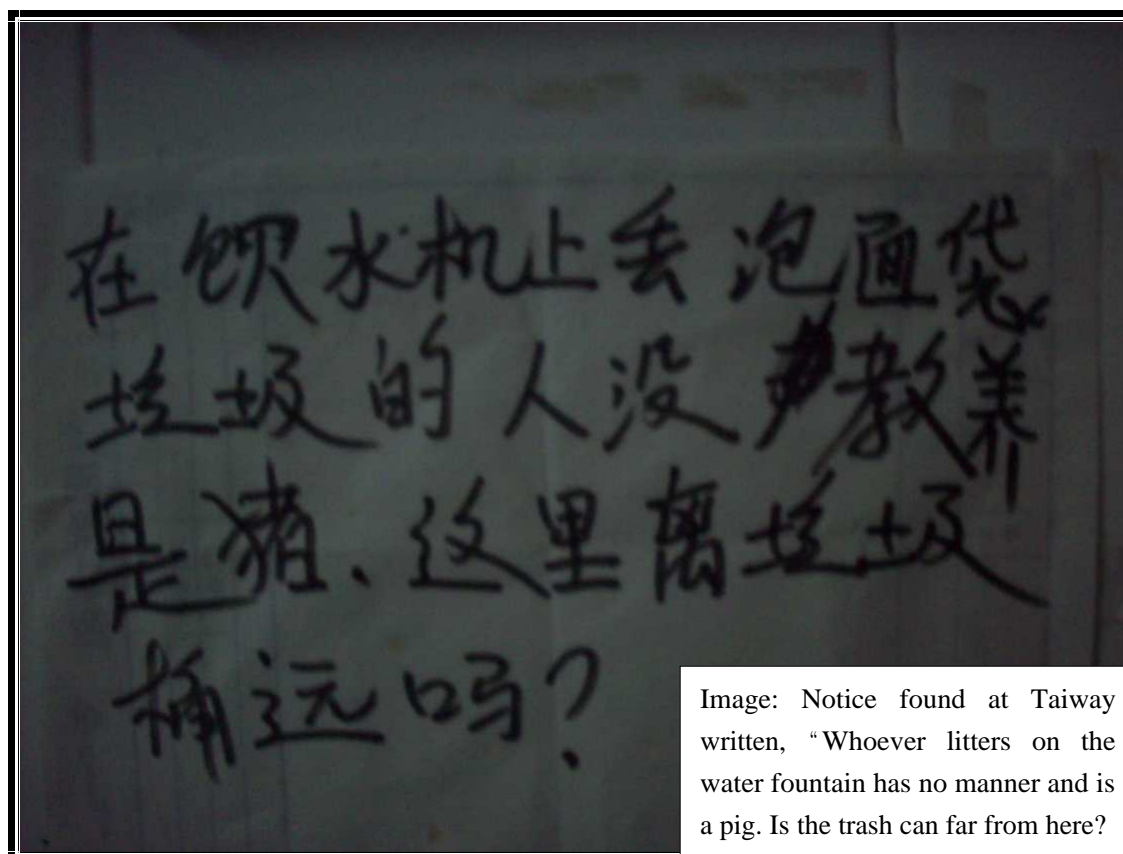 在饮水机上丢泡面袋
垃圾的人没教养
是猪、这里离垃圾
桶远吗?
Image: Notice found at Taiway
written, “Whoever litters on the
water fountain has no manner and is
a pig. Is the trash can far from here?